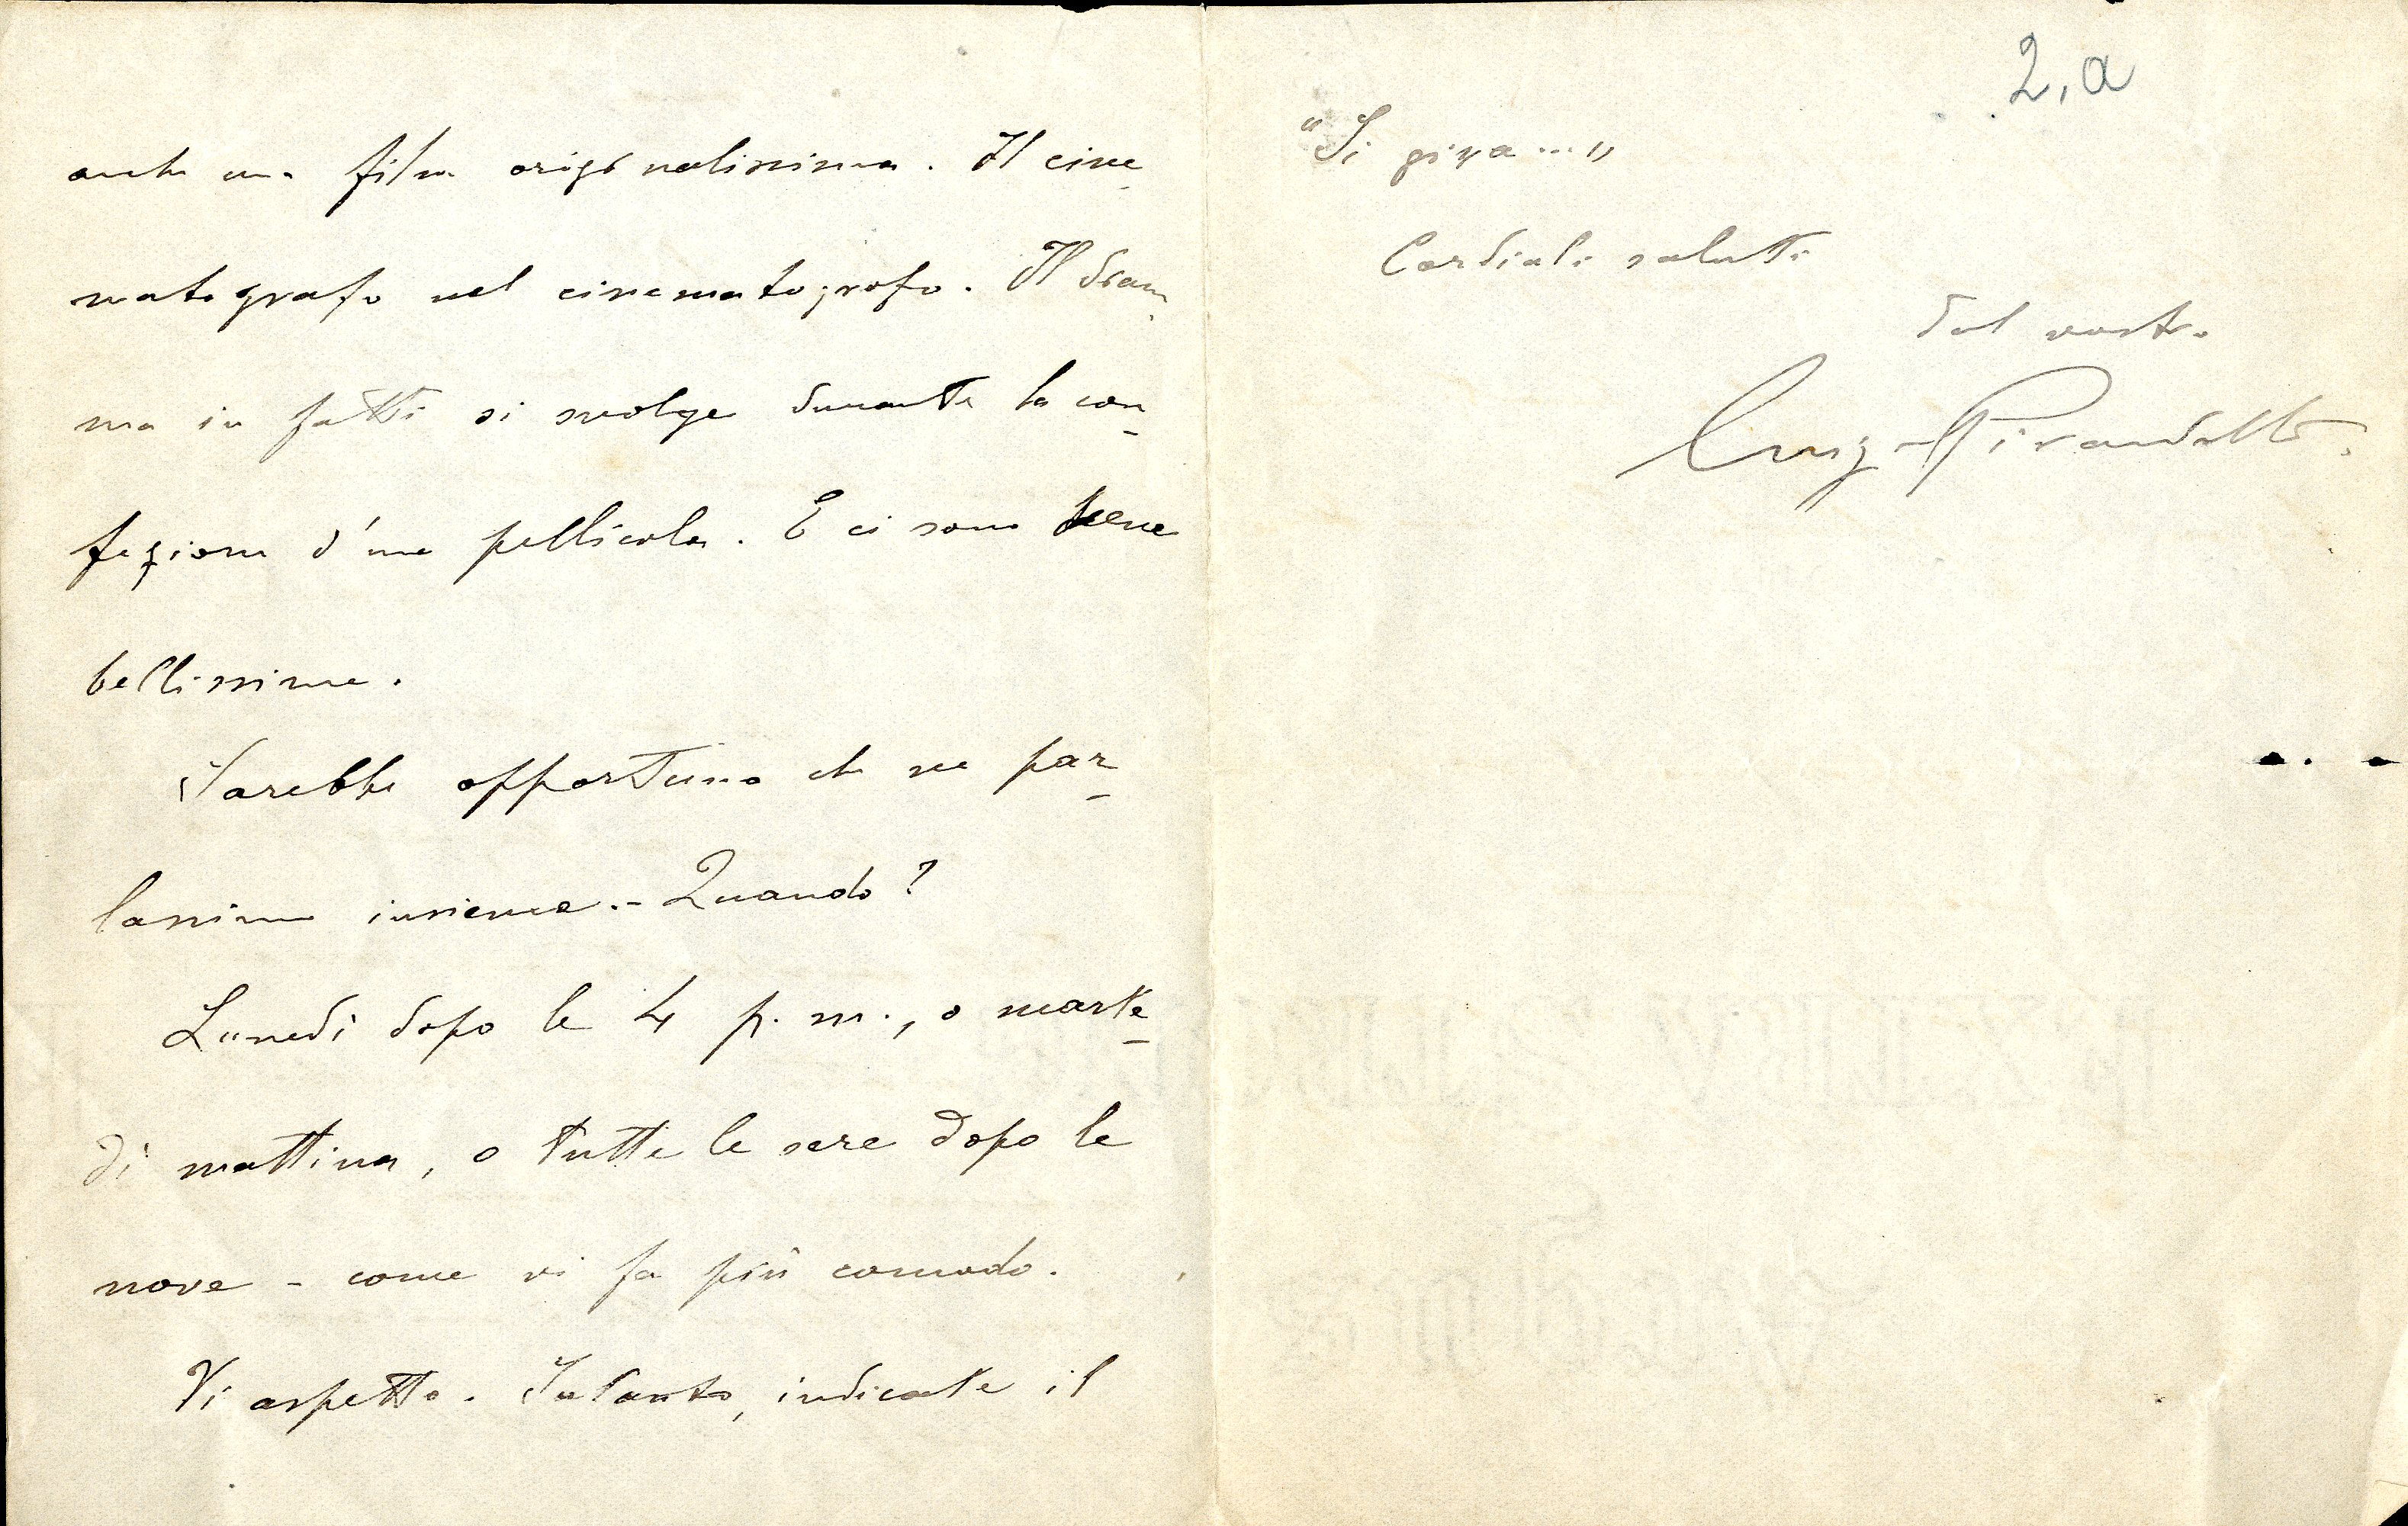 anche una film originalissima. Il cine-
matografo nel cinematografo. Il dram-
ma in fatti si svolge durante la con-
fezione d'una pellicola. E ci sono scene
bellissime.
Sarebbe opportuno che ne par-
lassimo insieme. - Quando?
Lunedì dopo le 4 p. m., o marte-
dì mattina, o tutte le sere dopo le
nove - come vi fa più comodo.
Vi aspetto. Intanto, indicate il
2, a
"Si gira..."
Cordiali saluti
dal vostro
Luigi Pirandello.